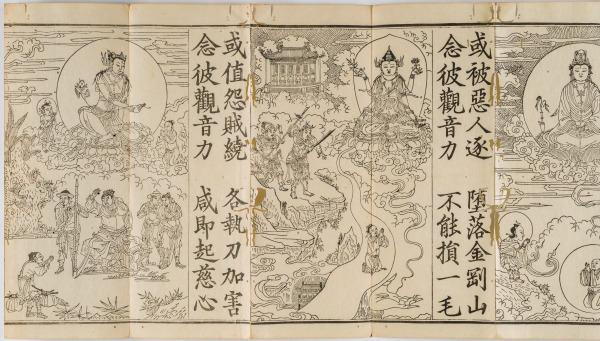 或被惡人逐 墮落金剛山
念彼觀音力 不能損一毛
或值怨賊繞 各執刀加害
念彼觀音力 咸即起慈心